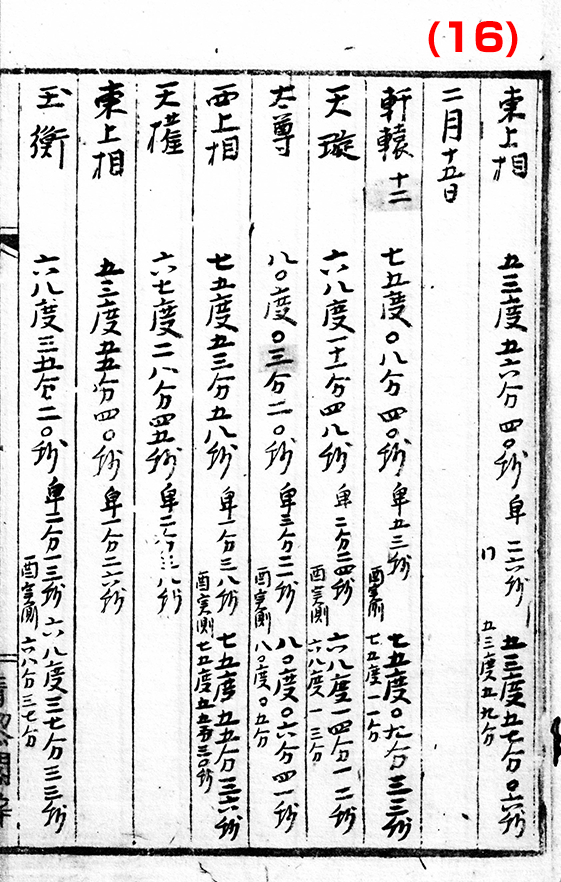 (16)
東上相 五三度五六分四〇秒 卑 二六秒 五三度五七分〇六秒
五三度五九分
二月十五日
軒轅十二 七五度〇八分四〇秒 卑五三秒 七五度〇九分三三秒
酉実測 七五度一一分
天璇 六八度一一分四八秒 卑二分二四秒 六八度一四分一二秒
酉実測 六八度一三分
太尊 八〇度〇三分二〇秒 卑三分二一秒 八〇度〇六分四一秒
酉実測 八〇度〇五分
西上相 七五度五三分五八秒 卑一分三八秒 七五度五五分三六秒
酉実測 七五度五五分三〇秒
天權 六七度二八分四五秒 卑二分三八秒
東上相 五三度五五分四〇秒 卑一分二六秒
玉衡 六八度三五分二〇秒 卑二分一三秒 六八度三七分三三秒
酉実測 六八分三七分